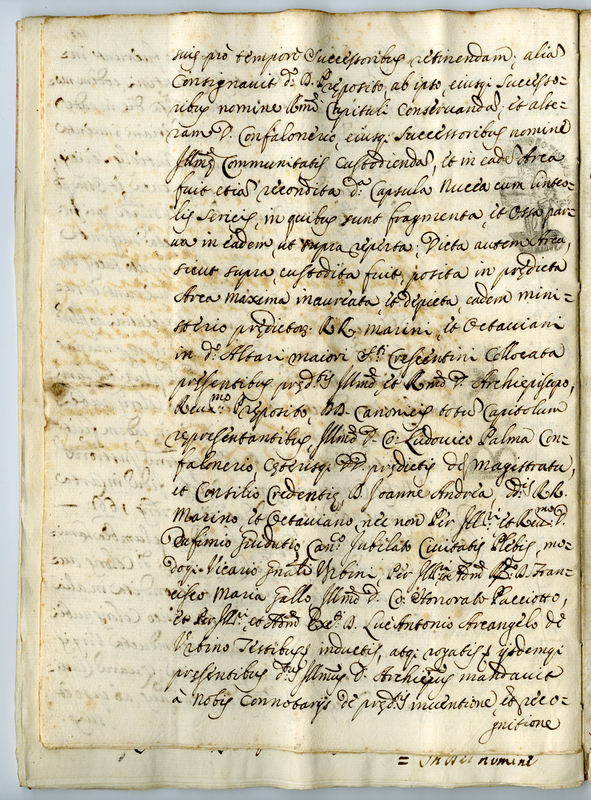 suis prò tempore Successoribus retinendam, alia
Consignavit d.º D. Preposito, ab ipso, eiusq; Successo=
ribus nomine Rmi Capituli Conservanda, et alte=
ram D. Confalonerio, eiusq; Successoribus nomine
Illmę Communitatis Custodienda, et in eade Arca
fuit etiā recondita d.ª Capsula Nucea cum linteo=
lis Sericis, in quibus sunt fragmenta, et Ossa par=
va in eadem, ut supra reperta; Dicta autem Arca,
sicut supra, custodita fuit, posita in prędicta
Arca maxima inaurata, et depicta eadem mini=
sterio prędictor. RR. Marini, et Octaviani
in d.º Altari maiori S.ti Crescentini Collocata
pręsentibus pręd.is Illmo et Rmo D. Archiepiscopo,
Reu.mo Preposito, DD. Canonicis totū Capitolum
repręsentantibus, Illmo D. Co: Ludovico Palma Con=
falonerio, Cęterisq; DD. prędictis de Magistratu,
et Consilio Credentię, D. Joanne Andrea, d.is RR.
Marino et Octaviano, nec non Per Ill.ri et Reu.mo D.
Can.º Jubilato Civitatis Plebis, mo=
Vicario gnāli Urbini, Per Ill. D. Fran=
cisco Maria Gallo Illmo D. Co: Honorato Pacciotto,
et Per Ill.ri D. Luc'Antonio Arcangelo de
Urbino Testibus inductis, atq; rogatis;
pręsentibus Illmus D. Archiepus mandavit
à Nobis Connotarijs de pręd.is inventione, et reco=
gnitione
= In Dei nomine